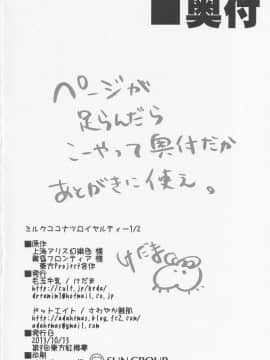 ■奥付
ページが
足らんだら
こーやって奥付だか
あとがきに使え。
けだま
ミルクココナツロイヤルティー1/2
■原作
上海アリス幻樂団 様
黄昏フロンティア 様
東方Project各作
■発行
毛玉牛乳 / けだま
ドットエイト / さわやか鮫肌
■発行日
2013/10/13
■印刷
SUN GROUP